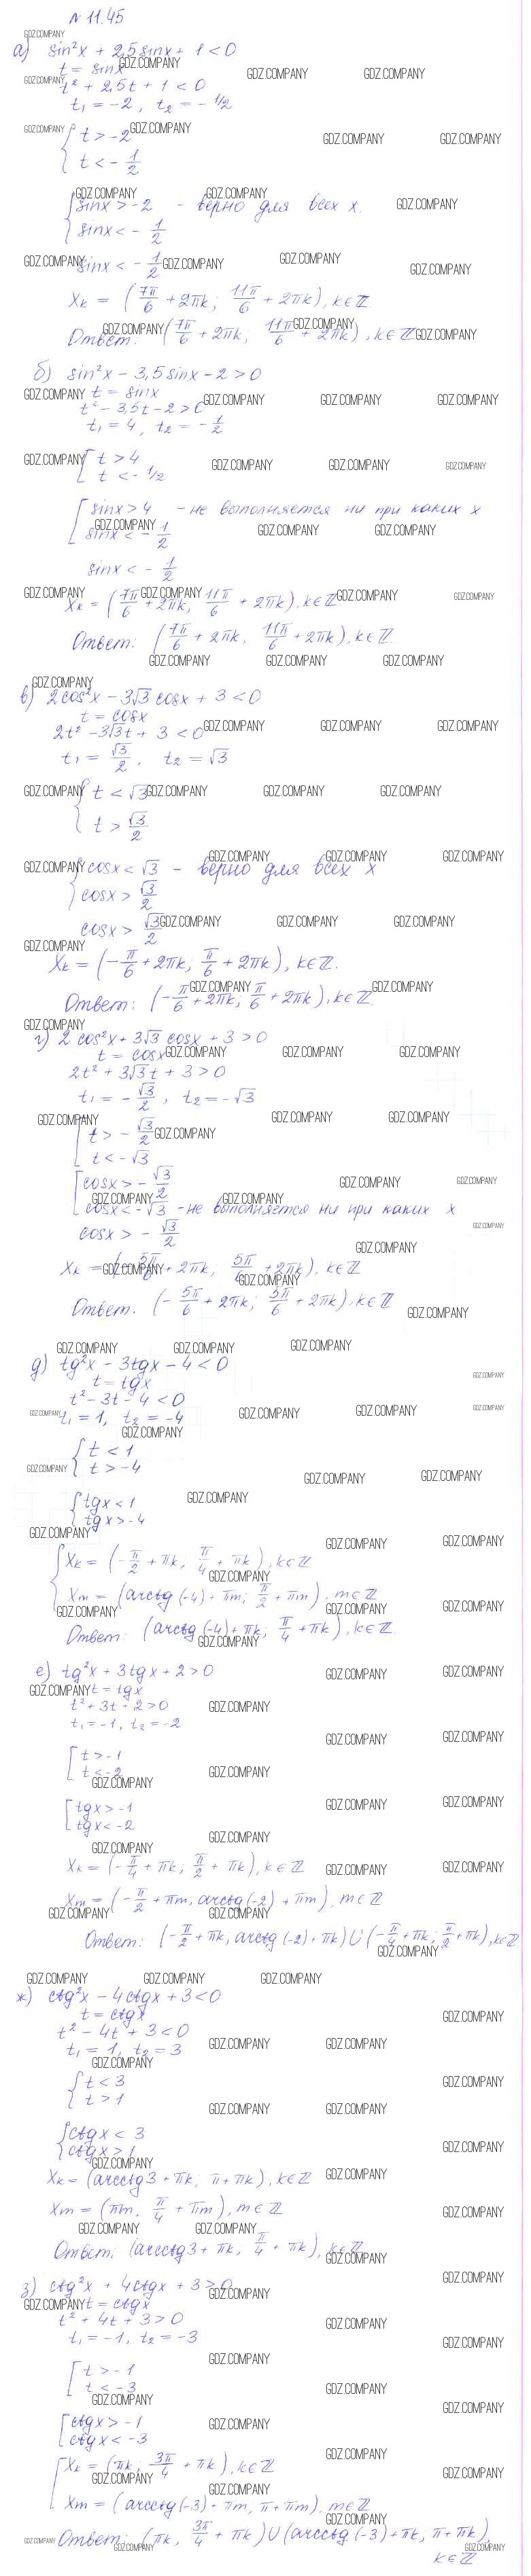 № 11.45
а) sin²x + 2,5 sinx + 1 < 0
t = sinx
t² + 2,5t + 1 < 0
t₁ = -2, t₂ = -1/2
{ t > -2
t < -1/2
{ sinx > -2 - верно для всех x.
sinx < -1/2
sinx < -1/2
Xk = (7π/6 + 2πk; 11π/6 + 2πk), k∈Z.
Ответ: (7π/6 + 2πk; 11π/6 + 2πk), k∈Z
б) sin²x - 3,5 sinx - 2 > 0
t = sinx
t² - 3,5t - 2 > 0
t₁ = 4, t₂ = -1/2
[ t > 4
t < -1/2
[ sinx > 4 - не выполняется ни при каких x
sinx < -1/2
sinx < -1/2
Xk = (7π/6 + 2πk, 11π/6 + 2πk), k∈Z
Ответ: (7π/6 + 2πk, 11π/6 + 2πk), k∈Z
в) 2cos²x - 3√3 cosx + 3 < 0
t = cosx
2t² - 3√3t + 3 < 0
t₁ = √3/2, t₂ = √3
{ t < √3
t > √3/2
{ cosx < √3 - верно для всех x
cosx > √3/2
cosx > √3/2
Xk = (-π/6 + 2πk; π/6 + 2πk), k∈Z.
Ответ: (-π/6 + 2πk; π/6 + 2πk), k∈Z.
г) 2 cos²x + 3√3 cosx + 3 > 0
t = cosx
2t² + 3√3t + 3 > 0
t₁ = -√3/2, t₂ = -√3
[ t > -√3/2
t < -√3
[ cosx > -√3/2
cosx < -√3 - не выполняется ни при каких x
cosx > -√3/2
Xk = (-5π/6 + 2πk; 5π/6 + 2πk), k∈Z
Ответ: (-5π/6 + 2πk; 5π/6 + 2πk), k∈Z
д) tg²x - 3tgx - 4 < 0
t = tgx
t² - 3t - 4 < 0
t₁ = 1, t₂ = -4
{ t < 1
t > -4
{ tgx < 1
tgx > -4
{ Xk = (-π/2 + πk, π/4 + πk), k∈Z
Xm = (arctg(-4) + πm; π/2 + πm), m∈Z
Ответ: (arctg(-4) + πk; π/4 + πk), k∈Z.
е) tg²x + 3tgx + 2 > 0
t = tgx
t² + 3t + 2 > 0
t₁ = -1, t₂ = -2
[ t > -1
t < -2
[ tgx > -1
tgx < -2
Xk = (-π/4 + πk, π/2 + πk), k∈Z
Xm = (-π/2 + πm, arctg(-2) + πm), m∈Z
Ответ: (-π/2 + πk, arctg(-2) + πk) ∪ (-π/4 + πk; π/2 + πk), k∈Z
ж) ctg²x - 4ctgx + 3 < 0
t = ctgx
t² - 4t + 3 < 0
t₁ = 1, t₂ = 3
{ t < 3
t > 1
{ ctgx < 3
ctgx > 1
Xk = (arcctg3 + πk; π + πk), k∈Z
Xm = (πm, π/4 + πm), m∈Z
Ответ: (arcctg3 + πk, π/4 + πk), k∈Z
з) ctg²x + 4ctgx + 3 > 0
t = ctgx
t² + 4t + 3 > 0
t₁ = -1, t₂ = -3
[ t > -1
t < -3
[ ctgx > -1
ctgx < -3
[ Xk = (πk; 3π/4 + πk), k∈Z
Xm = (arcctg(-3) + πm, π + πm), m∈Z
Ответ: (πk, 3π/4 + πk) ∪ (arcctg(-3) + πk, π + πk),
k∈Z
GDZ.COMPANY